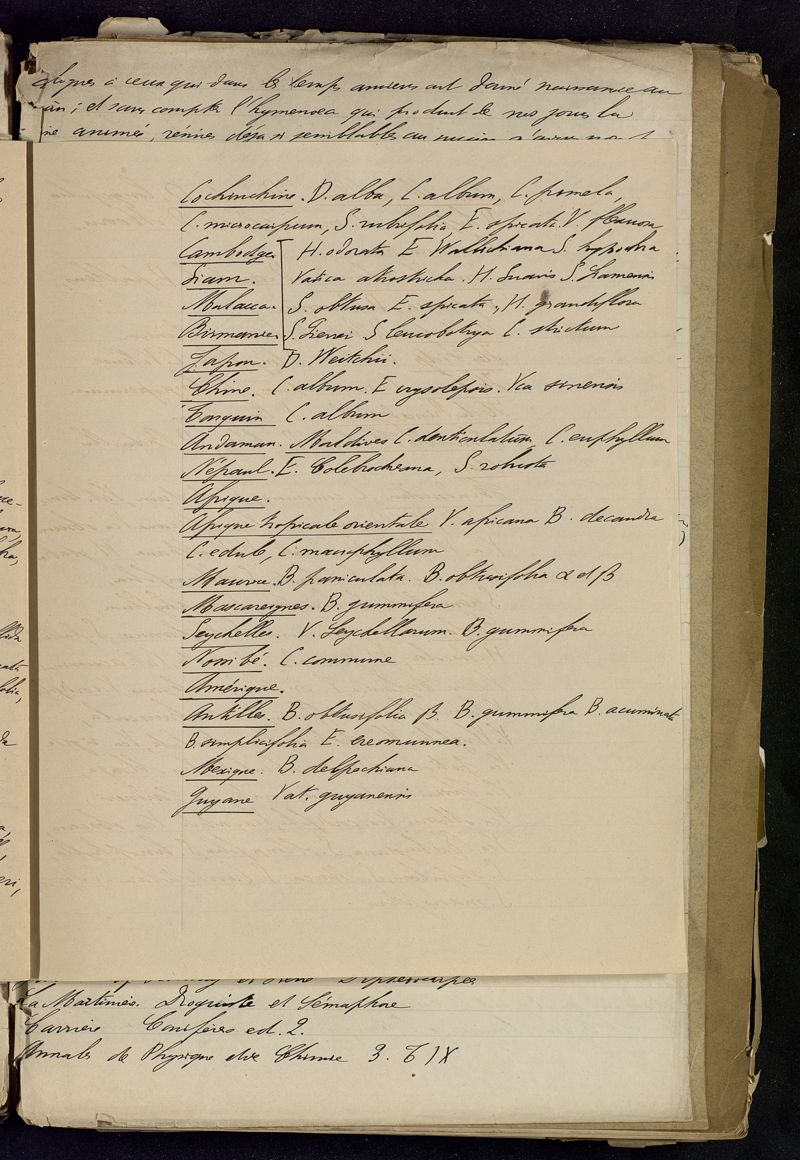 à ceux qui dans les temps anciens ont donné naissance au
; et sans compter l'hymenoea qui produit de nos jours la
animée, résines déjà si semblables au
Cochinchine. D. alba, C. album, C. pimela,
C. microcarpum, S. rubifolia E. spicata V.
Cambodge H. odorata E Wallichiana S. hypochra
Siam. Vatica atrosticha. H. Suavis S. Siamensis
Malacca. S. obtusa E. spicata, H. grandiflora
Birmanie S. S leucobotrya C. strictum
Japon. D. Weitchii.
Chine. C. album. E crysolepis. Vca sinensis
Tonquin C. album
Andaman. Maldives C. denticulatum, C. euphyllum
Népaul. E. Colebrockeana, S. robusta
Afrique.
Afrique tropicale orientale V. africana B. decandra
C. edule, C. macrophyllum
Maurice. B. paniculata. B. obtusifolia α et β
Mascareignes. B. gummifera
Seychelles. V. Seychellarum. B. gummifera
Nossibé. C. commune
Amérique.
Antilles. B. obtusifolia β. B. gummifera B. acuminata
B. simplicifolia E. eremunnea.
Mexique. B. delpechiana
Guyane Vat. guyanensis
La Martinière. Droguiste et Sémaphore
Carrière Conifères ed. 2.
Annales de Physique et de Chimie 3. T IX